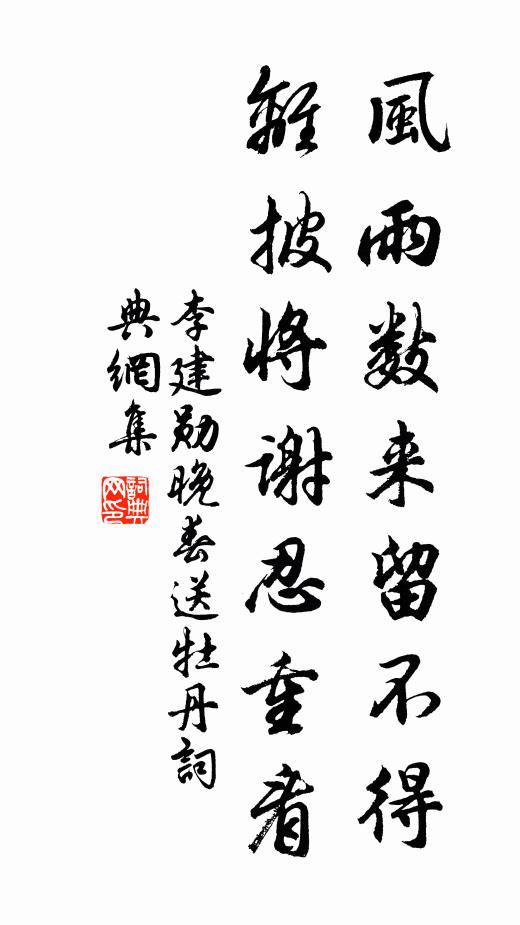 風雨數来留不得
離披将謝忍重看
李建勋晚春送牡丹詞
典網集
詞典
网印